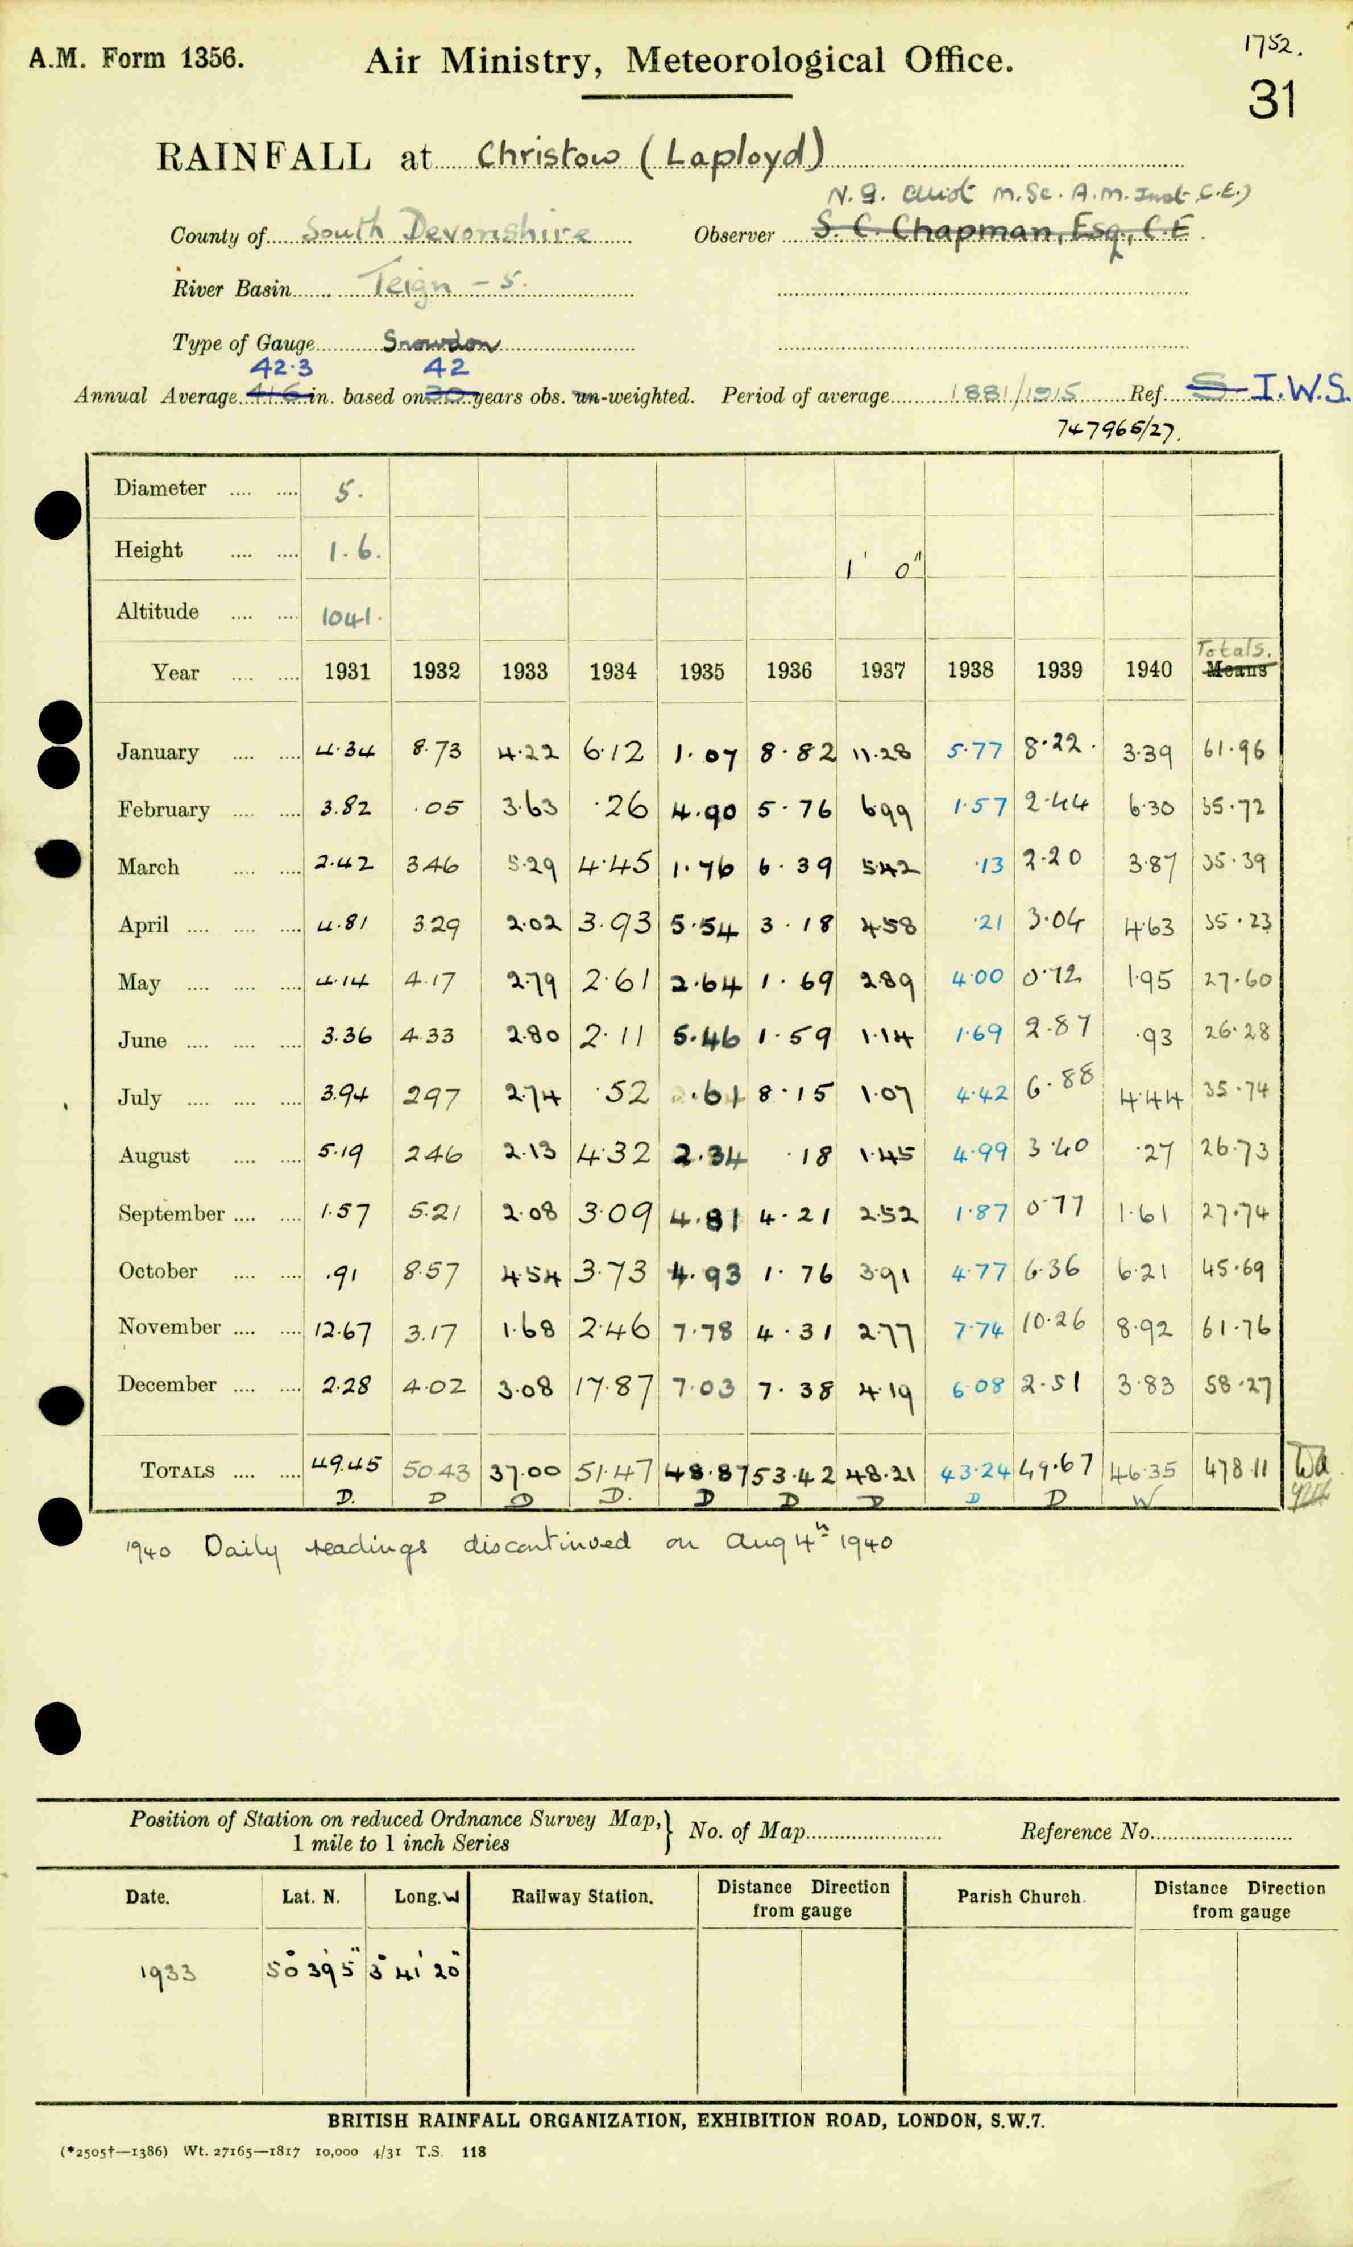 A.M. Form 1356.
Air Ministry, Meteorological Office.
1752.
31
RAINFALL at Christow (Laployd)
N. G. Elliot M.Sc. A.M. Inst. C.E.)
County of South Devonshire Observer S. C. Chapman, Esq., C.E.
River Basin Teign - 5.
Type of Gauge Snowdon
42.3 42
Annual Average 41.6 in. based on 30 years obs. un-weighted. Period of average 1881/1915 Ref. S I.W.S.
747965/27.
Diameter 5.
Height 1.6. 1' 0"
Altitude 1041.
Totals.
Year 1931 1932 1933 1934 1935 1936 1937 1938 1939 1940 Means
January 4.34 8.73 4.22 6.12 1.07 8.82 11.28 5.77 8.22. 3.39 61.96
February 3.82 .05 3.63 .26 4.90 5.76 6.99 1.57 2.44 6.30 35.72
March 2.42 3.46 5.29 4.45 1.76 6.39 5.42 .13 2.20 3.87 35.39
April 4.81 3.29 2.02 3.93 5.54 3.18 4.58 .21 3.04 4.63 35.23
May 4.14 4.17 2.79 2.61 2.64 1.69 2.89 4.00 0.72 1.95 27.60
June 3.36 4.33 2.80 2.11 5.46 1.59 1.14 1.69 2.87 .93 26.28
July 3.94 2.97 2.74 .52 .61 8.15 1.07 4.42 6.88 4.44 35.74
August 5.19 2.46 2.13 4.32 2.34 .18 1.45 4.99 3.40 .27 26.73
September 1.57 5.21 2.08 3.09 4.81 4.21 2.52 1.87 0.77 1.61 27.74
October .91 8.57 4.54 3.73 4.93 1.76 3.91 4.77 6.36 6.21 45.69
November 12.67 3.17 1.68 2.46 7.78 4.31 2.77 7.74 10.26 8.92 61.76
December 2.28 4.02 3.08 17.87 7.03 7.38 4.19 6.08 2.51 3.83 58.27
TOTALS 49.45 50.43 37.00 51.47 48.87 53.42 48.21 43.24 49.67 46.35 478.11
D. D D D. D D D D D W
1940 Daily readings discontinued on Aug 4th 1940
Position of Station on reduced Ordnance Survey Map,} No. of Map Reference No.
1 mile to 1 inch Series
Date. Lat. N. Long. W Railway Station. Distance Direction from gauge Parish Church. Distance Direction from gauge
1933 50° 39' 5" 3° 41' 20"
BRITISH RAINFALL ORGANIZATION, EXHIBITION ROAD, LONDON, S.W.7.
(*2505†—1386) Wt. 27165—1817 10,000 4/31 T.S. 118